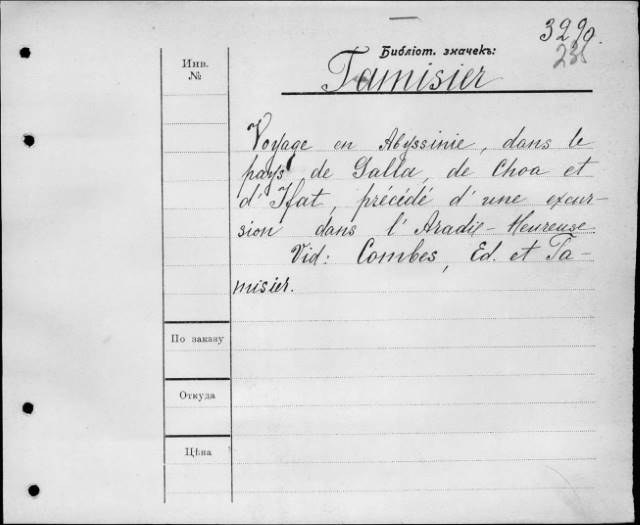 3290.
235
Библіот. значекъ:
Tamisier
Инв.
№
Voyage en Abyssinie, dans le
pays de Galla, de Choa et
d'Ifat, précédé d'une excur-
sion dans l'Aradie-Heureuse
Vid: Combes, Ed. et Ta-
misier.
По заказу
Откуда
Цѣна